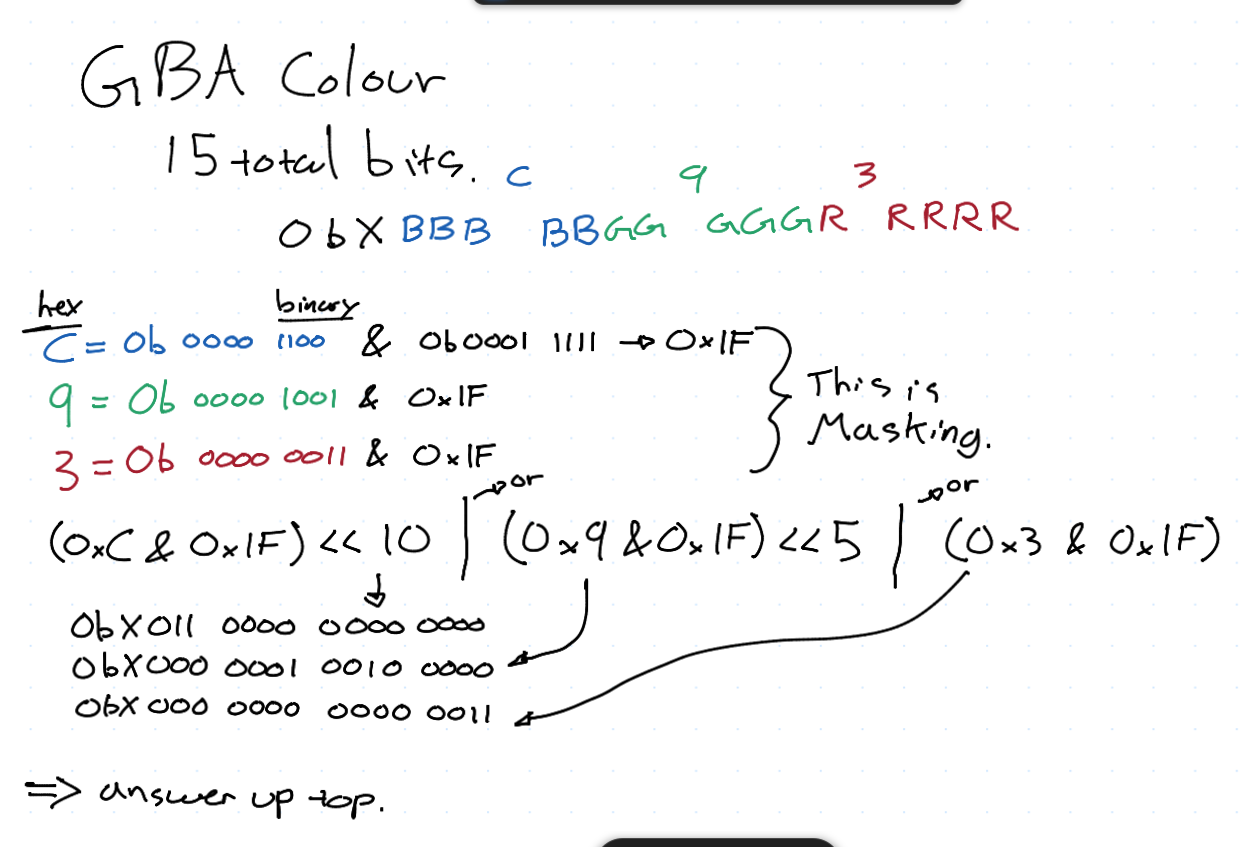 GBA Colour
15 total bits.
C 9 3
0bX BBB BBGG GGGR RRRR
hex binary
C = 0b 0000 1100 & 0b0001 1111 → 0x1F
9 = 0b 0000 1001 & 0x1F
3 = 0b 0000 0011 & 0x1F
This is
Masking.
→ or → or
(0xC & 0x1F) << 10 | (0x9 & 0x1F) << 5 | (0x3 & 0x1F)
0bX011 0000 0000 0000
0bX000 0001 0010 0000
0bX000 0000 0000 0011
=> answer up top.